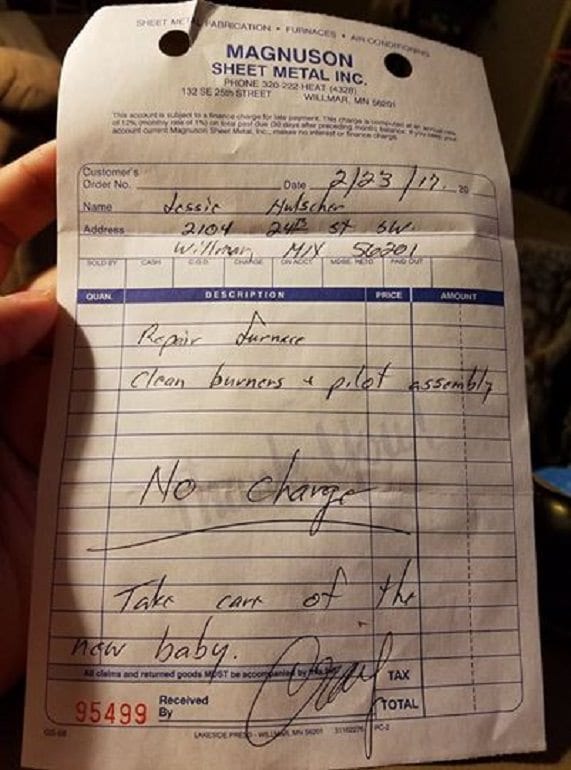 SHEET METAL FABRICATION • FURNACES • AIR CONDITIONING
MAGNUSON
SHEET METAL INC.
PHONE 320-222-HEAT (4328)
132 SE 25th STREET WILLMAR, MN 56201
This account is subject to a finance charge for late payment. This charge is computed at an annual rate
of 12% (monthly rate of 1%) on total past due (30 days after preceding month) balance. If you keep your
account current Magnuson Sheet Metal, Inc., makes no interest or finance charge.
Customer's
Order No. Date 2/23/17 20
Name Jessie Hulscher
Address 2104 24th St SW.
Willmar, MN 56201
SOLD BY CASH C.O.D. CHARGE ON ACCT. MDSE. RETD. PAID OUT
QUAN. DESCRIPTION PRICE AMOUNT
Repair furnace
Clean burners + pilot assembly
Thank You!
No charge
Take care of the
new baby.
All claims and returned goods MUST be accompanied by this bill. TAX
95499 Received By TOTAL
GS-68 LAKESIDE PRESS - WILLMAR, MN 56201 PC-2